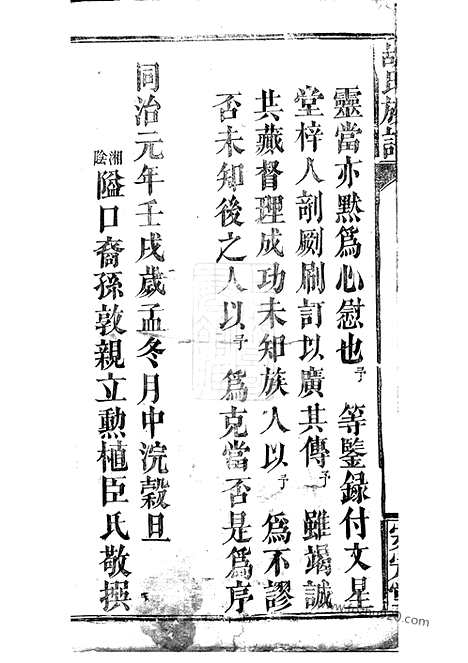 靈當亦默爲心慰也予等鑒録付文星
堂梓人剞劂刷訂以廣其傳予雖竭誠
共藏督理成功未知族人以予爲不謬
否未知後之人以予爲克當否是爲序
同治元年壬戌歲孟冬月中浣穀旦
湘陰隘口裔孫敦親立勲植臣氏敬撰